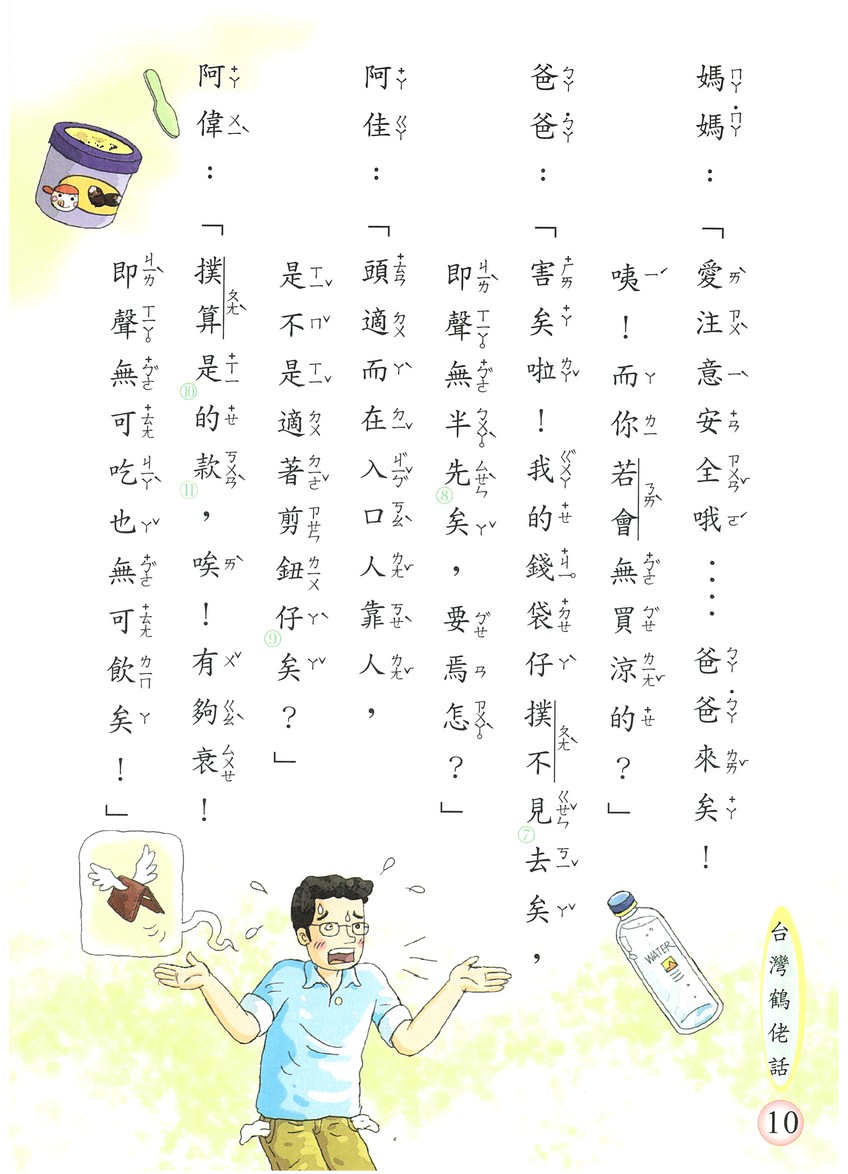 媽媽：「愛注意安全哦‥‥爸爸來矣！
咦！而你若會無買涼的？」
爸爸：「害矣啦！我的錢袋仔撲不見⑦去矣，
即聲無半先⑧矣，要焉怎？」
阿佳：「頭適而在入口人靠人，
是不是適著剪鈕仔⑨矣？」
阿偉：「撲算是⑩的款⑪，唉！有夠衰！
即聲無可吃也無可飲矣！」
WATER
台灣鶴佬話
10